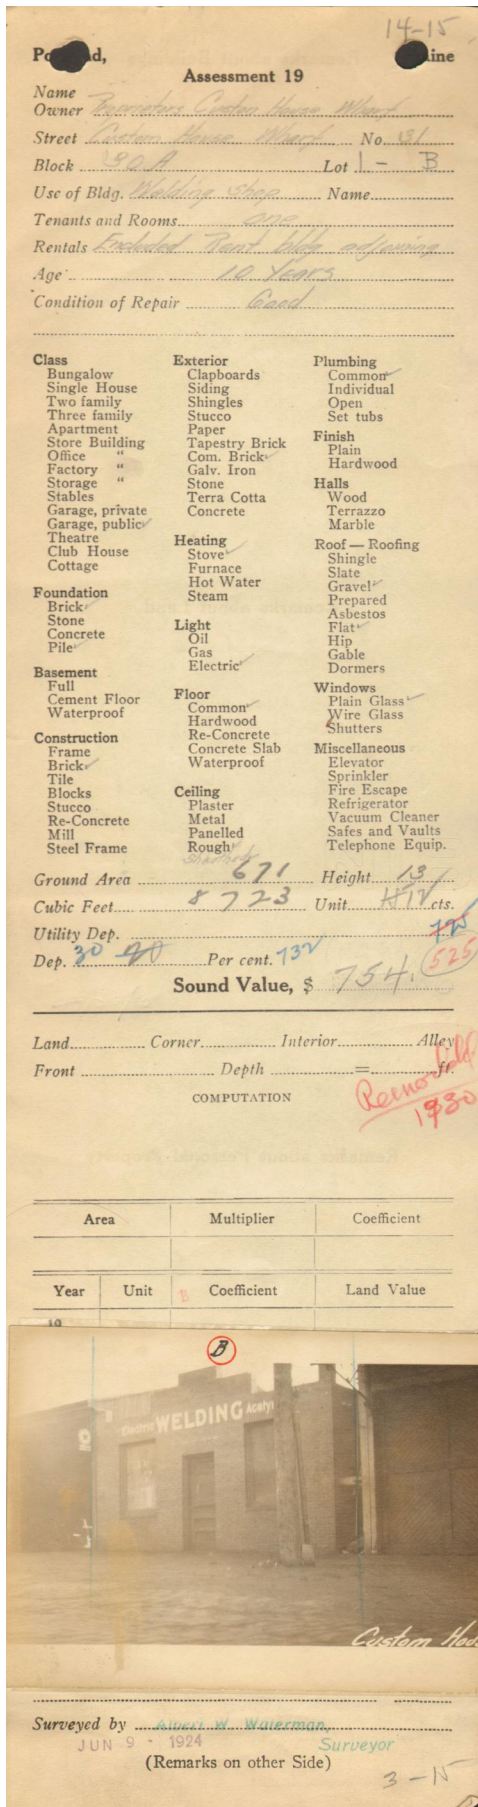 14-15
Po nd, aine
Assessment 19
Name
Owner Proprietors Custom House Wharf
Street Custom House Wharf No. 31
Block 30 A Lot 1 - B
Use of Bldg. Welding Shop Name
Tenants and Rooms one
Rentals Included Rent bldg adjoining
Age 10 Years
Condition of Repair Good
Class
Bungalow
Single House
Two family
Three family
Apartment
Store Building
Office "
Factory "
Storage "
Stables
Garage, private
Garage, public ✓
Theatre
Club House
Cottage
Foundation
Brick ✓
Stone
Concrete
Pile ✓
Basement
Full
Cement Floor
Waterproof
Construction
Frame
Brick ✓
Tile
Blocks
Stucco
Re-Concrete
Mill
Steel Frame
Exterior
Clapboards
Siding
Shingles
Stucco
Paper
Tapestry Brick
Com. Brick ✓
Galv. Iron
Stone
Terra Cotta
Concrete
Heating
Stove ✓
Furnace
Hot Water
Steam
Light
Oil
Gas
Electric ✓
Floor
Common ✓
Hardwood
Re-Concrete
Concrete Slab
Waterproof
Ceiling
Plaster
Metal
Panelled
Rough ✓
Sheathed
Plumbing
Common ✓
Individual
Open
Set tubs
Finish
Plain
Hardwood
Halls
Wood
Terrazzo
Marble
Roof — Roofing
Shingle
Slate
Gravel ✓
Prepared
Asbestos
Flat ✓
Hip
Gable
Dormers
Windows
Plain Glass ✓
Wire Glass
Shutters
Miscellaneous
Elevator
Sprinkler
Fire Escape
Refrigerator
Vacuum Cleaner
Safes and Vaults
Telephone Equip.
Ground Area 671 Height 13
Cubic Feet 8723 Unit 12 cts.
Utility Dep.
Dep. 30 Per cent. 732 525
Sound Value, $ 754.
Land Corner Interior Alley
Front Depth = ft.
Remodeled
1930
COMPUTATION
Area Multiplier Coefficient
Year Unit B Coefficient Land Value
19
B
Electric WELDING Acety
Custom Hou
Surveyed by Albert W. Waterman,
JUN 9 - 1924 Surveyor
(Remarks on other Side)
3-15